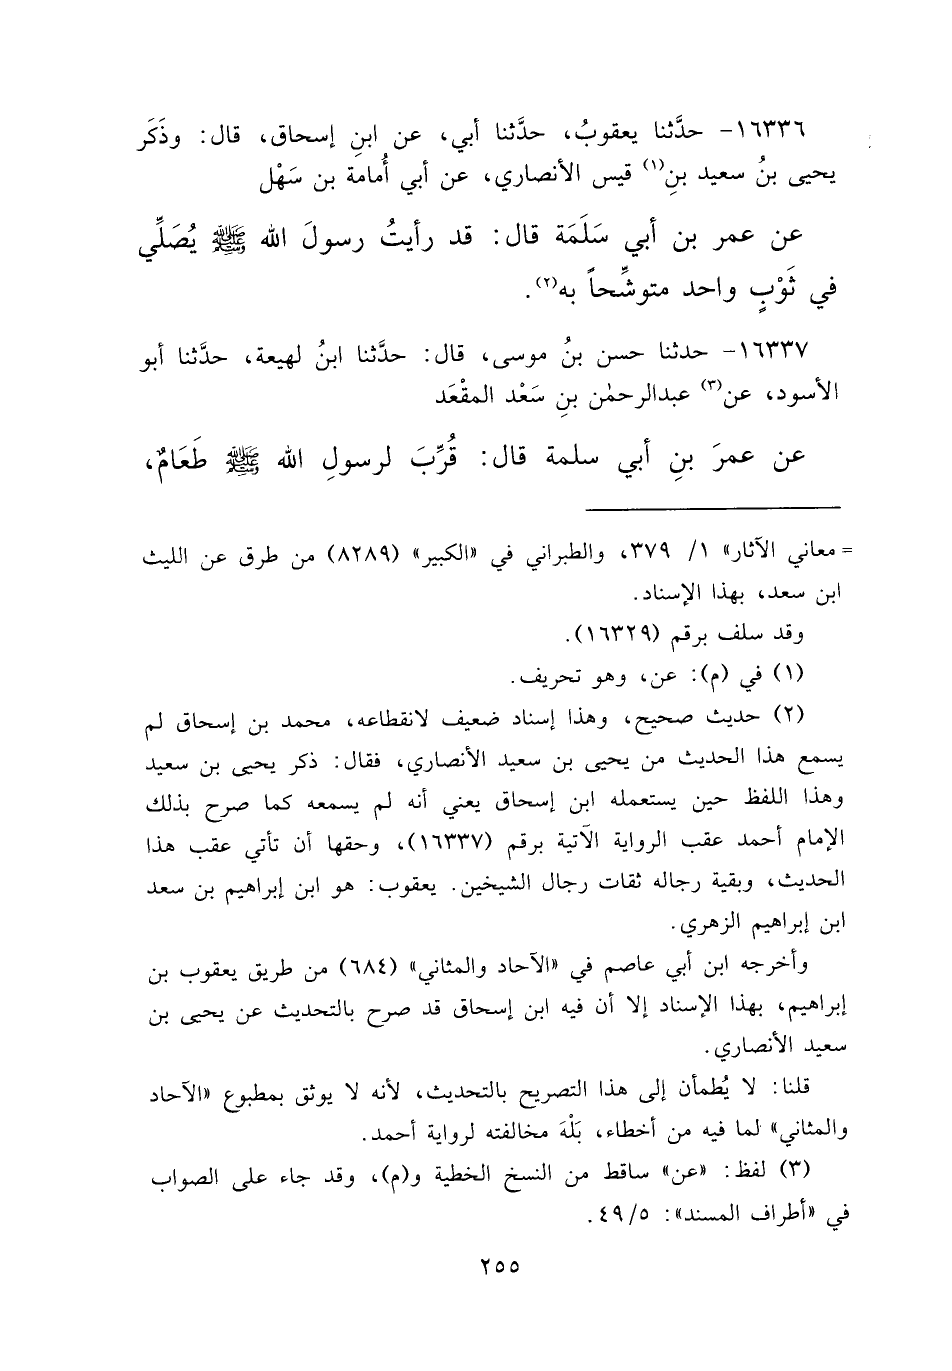 ١٦٣٣٦- حدَّثنا يعقوبُ، حدَّثنا أبي، عن ابنِ إسحاق، قال: وذَكَر
يحيى بنُ سعيد بنِ(١) قيس الأنصاري، عن أبي أُمامة بن سَهْل
عن عمر بن أبي سَلَمَة قال: قد رأيتُ رسولَ الله ﷺ يُصَلِّي
في ثَوْبٍ واحد متوشِّحاً به(٢).
١٦٣٣٧- حدثنا حسن بنُ موسى، قال: حدَّثنا ابنُ لهيعة، حدَّثنا أبو
الأسود، عن(٣) عبدالرحمٰن بنِ سَعْد المقْعَد
عن عمرَ بنِ أبي سلمة قال: قُرِّبَ لرسولِ الله ﷺ طَعَامٌ،
= معاني الآثار» ١/ ٣٧٩، والطبراني في «الكبير» (٨٢٨٩) من طرق عن الليث
ابن سعد، بهذا الإسناد.
وقد سلف برقم (١٦٣٢٩).
(١) في (م): عن، وهو تحريف.
(٢) حديث صحيح، وهذا إسناد ضعيف لانقطاعه، محمد بن إسحاق لم
يسمع هذا الحديث من يحيى بن سعيد الأنصاري، فقال: ذكر يحيى بن سعيد
وهذا اللفظ حين يستعمله ابن إسحاق يعني أنه لم يسمعه كما صرح بذلك
الإمام أحمد عقب الرواية الآتية برقم (١٦٣٣٧)، وحقها أن تأتي عقب هذا
الحديث، وبقية رجاله ثقات رجال الشيخين. يعقوب: هو ابن إبراهيم بن سعد
ابن إبراهيم الزهري.
وأخرجه ابن أبي عاصم في «الآحاد والمثاني» (٦٨٤) من طريق يعقوب بن
إبراهيم، بهذا الإسناد إلا أن فيه ابن إسحاق قد صرح بالتحديث عن يحيى بن
سعيد الأنصاري.
قلنا: لا يُطمأن إلى هذا التصريح بالتحديث، لأنه لا يوثق بمطبوع «الآحاد
والمثاني» لما فيه من أخطاء، بَلْهَ مخالفته لرواية أحمد.
(٣) لفظ: «عن» ساقط من النسخ الخطية و(م)، وقد جاء على الصواب
في «أطراف المسند»: ٤٩/٥.
٢٥٥